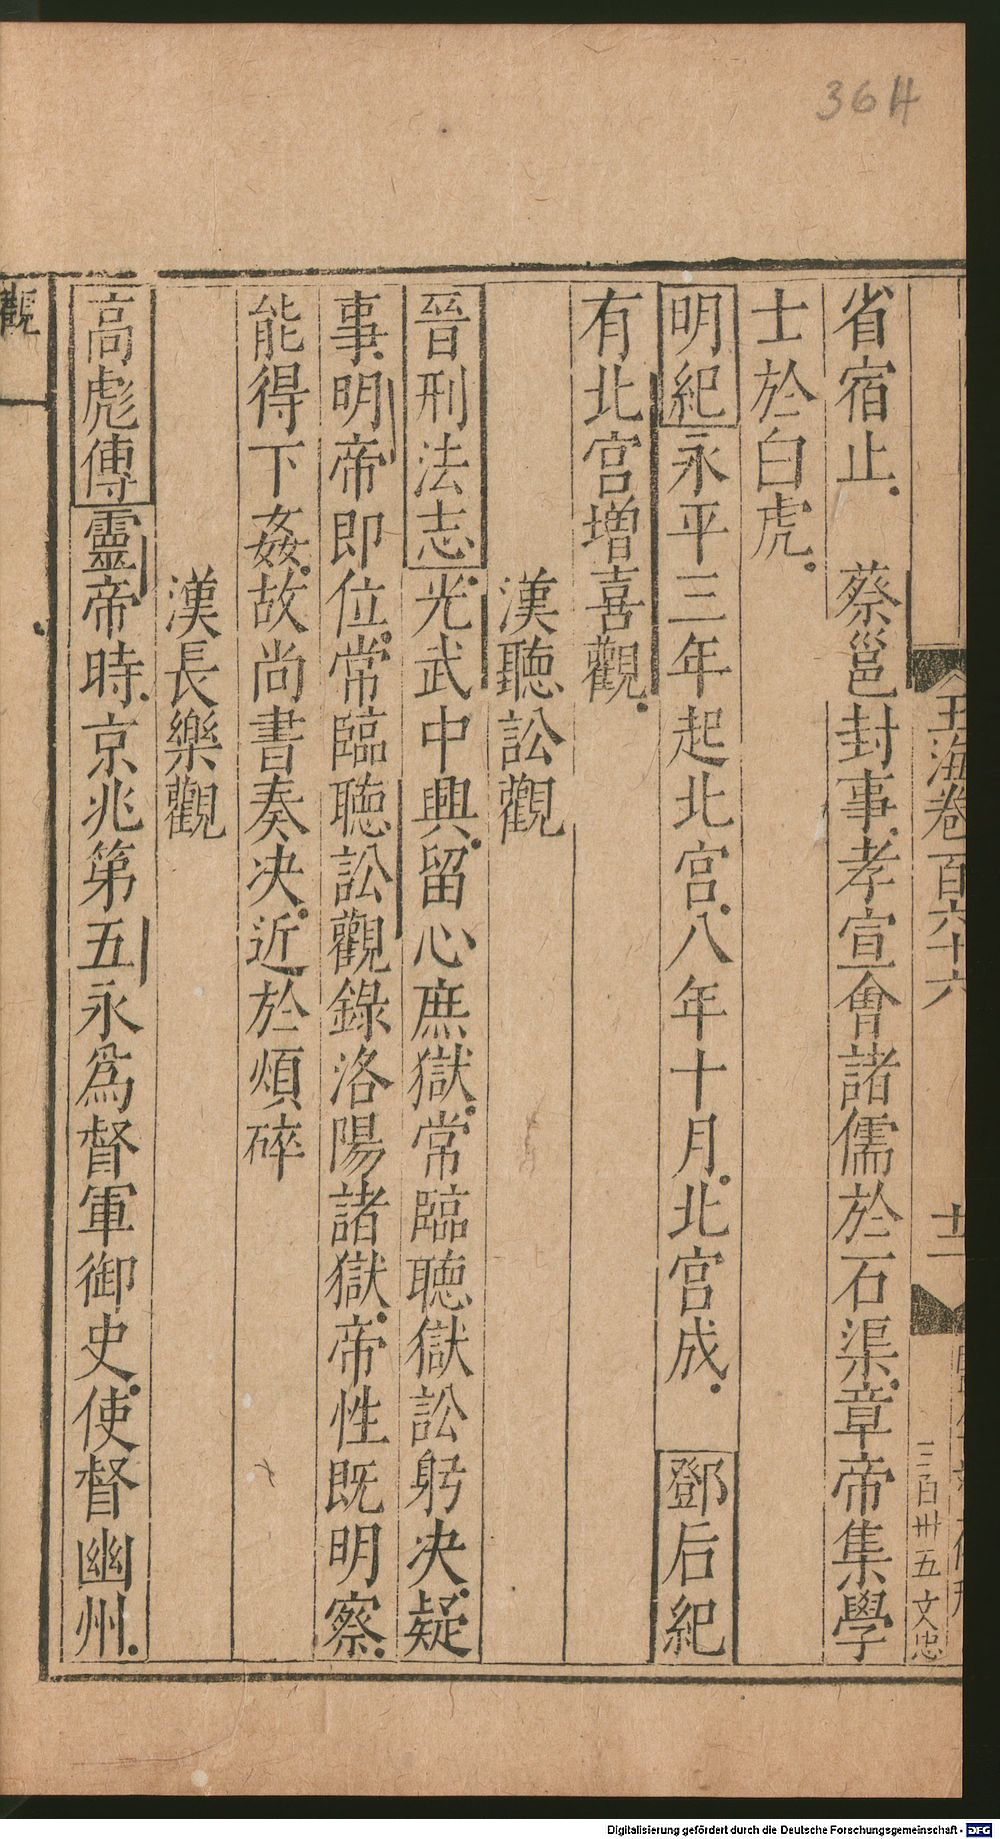 36H
玉海卷百六十六
十二
三百卅五 文忠
省宿止 蔡邕封事孝宣會諸儒於石渠章帝集學
士於白虎
明紀永平三年起北宮八年十月北宮成 鄧后紀
有北宮增喜觀
漢聽訟觀
晉刑法志光武中興留心庶獄常臨聽獄訟躬决疑
事明帝即位常臨聽訟觀錄洛陽諸獄帝性既明察
能得下姦故尚書奏决近於煩碎
漢長樂觀
高彪傳靈帝時京兆第五永為督軍御史使督幽州
觀
Digitalisierung gefördert durch die Deutsche Forschungsgemeinschaft - DFG